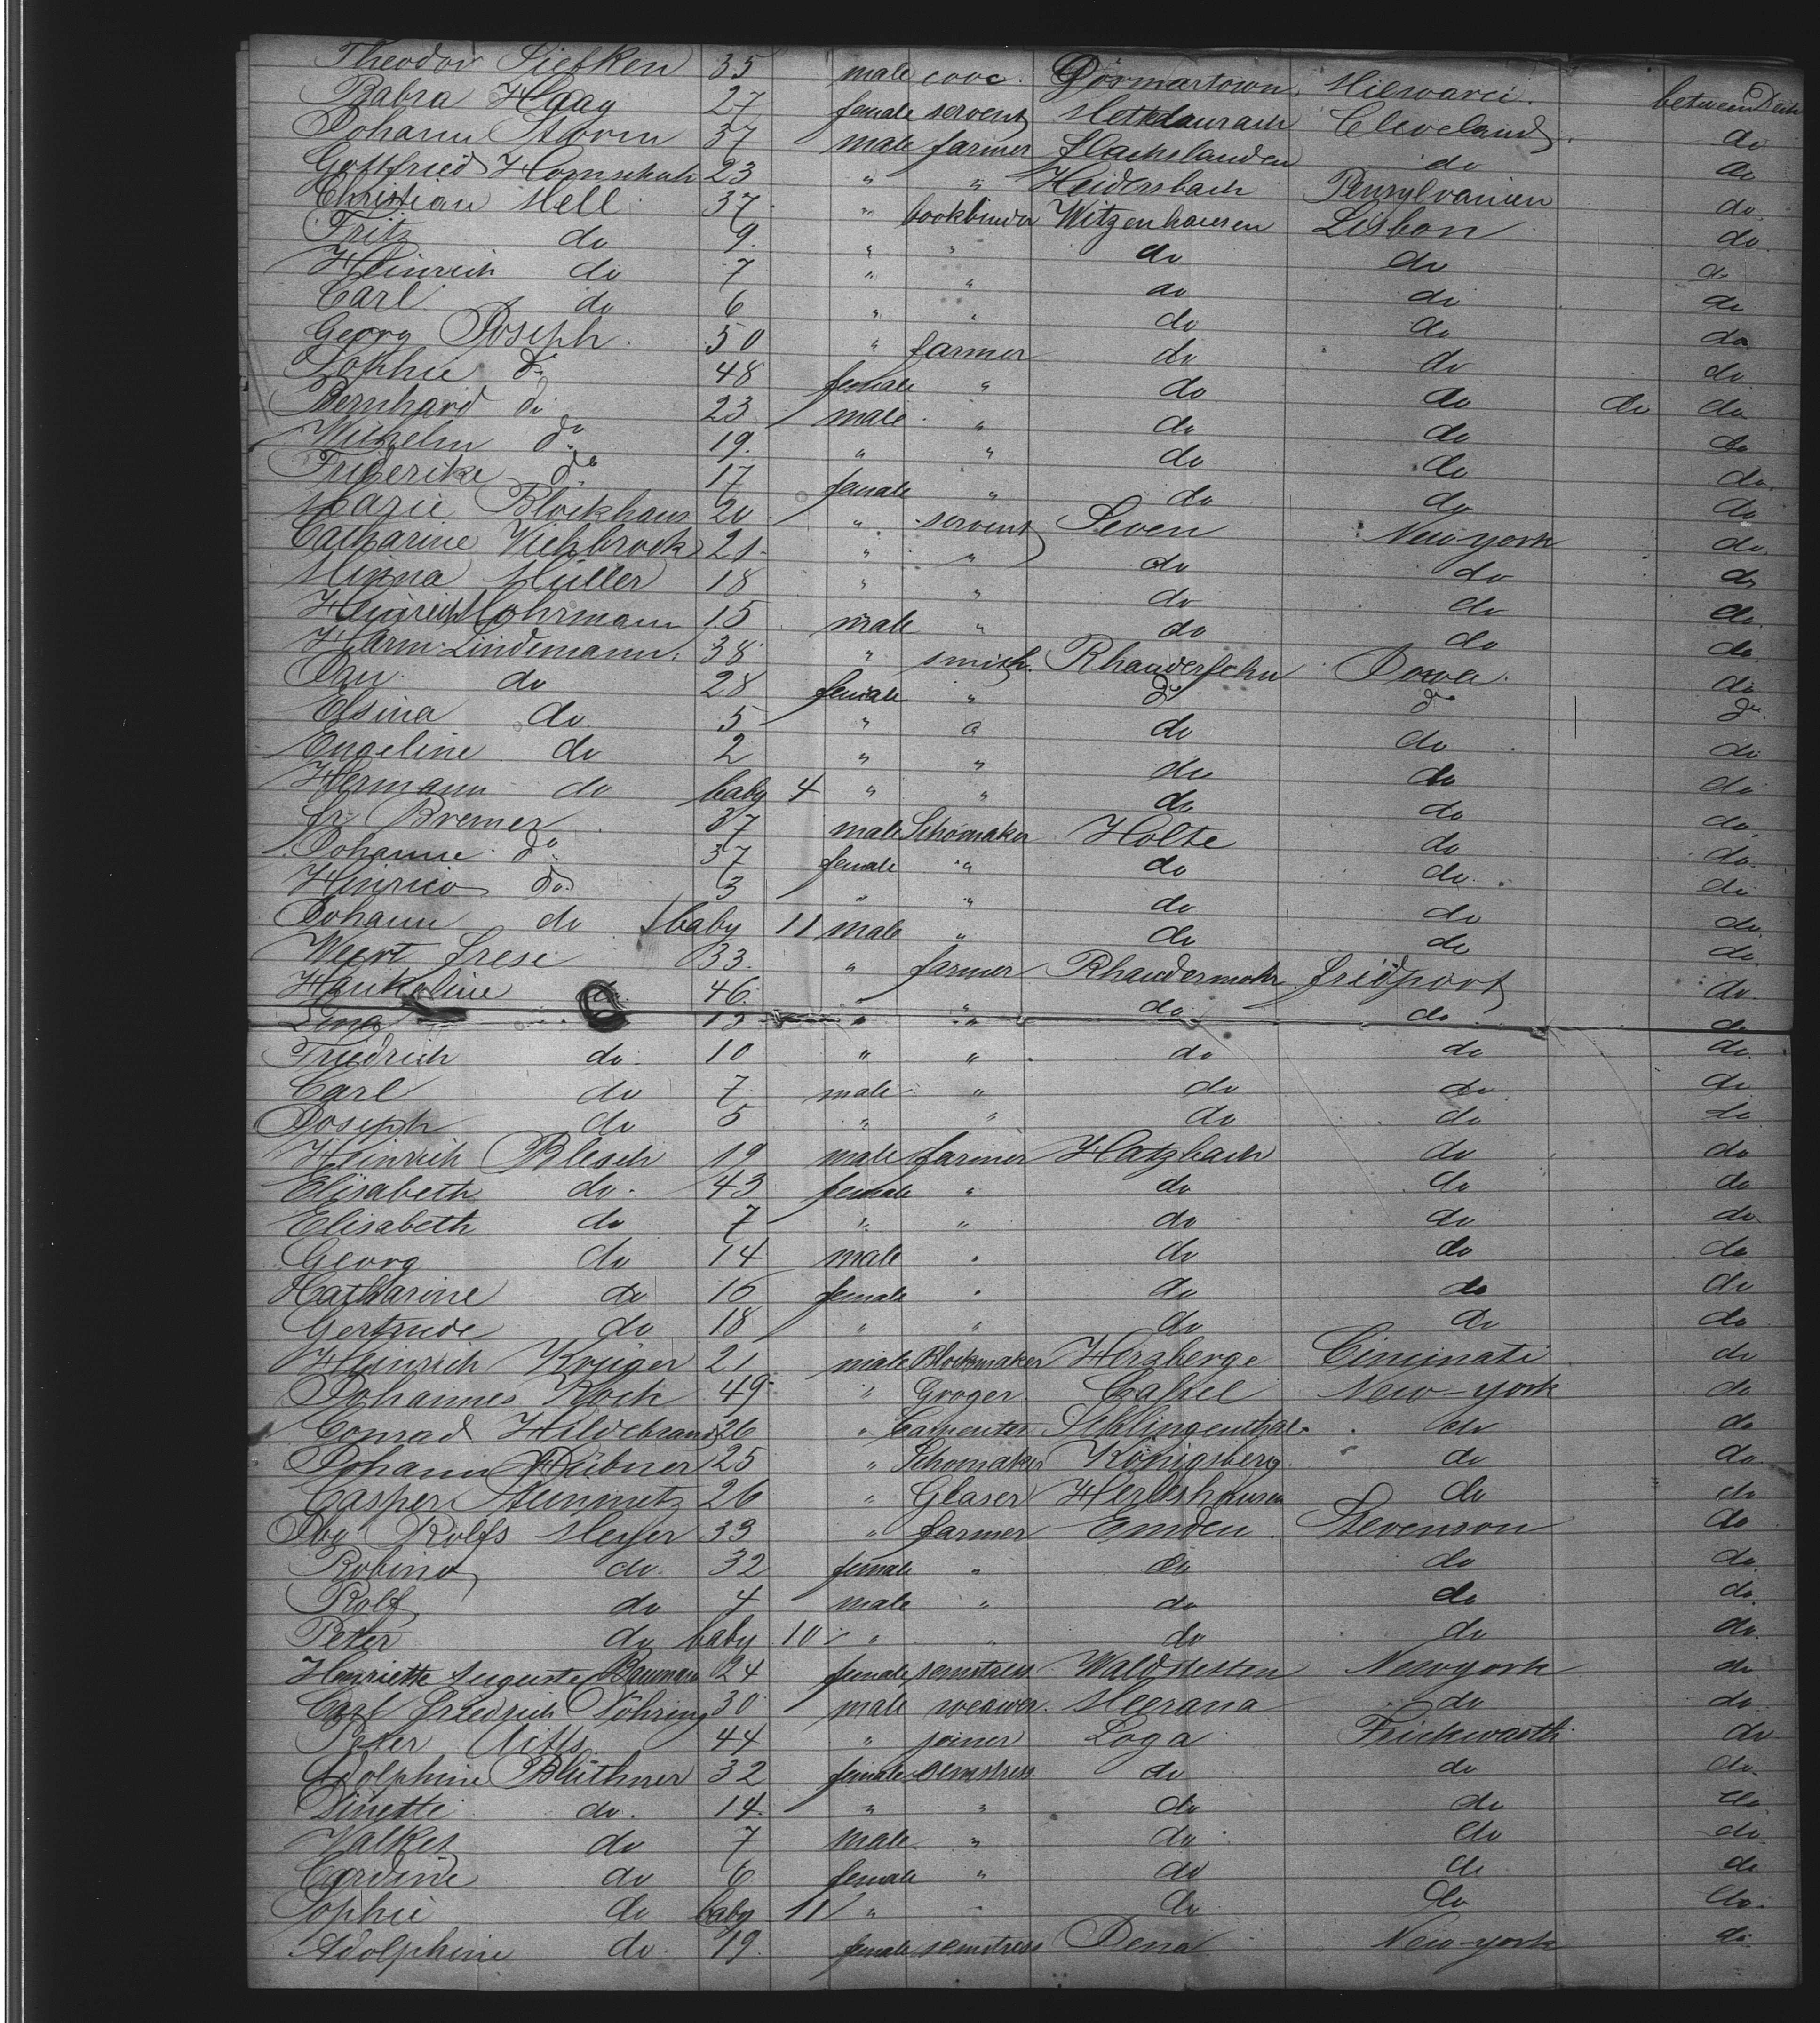 Theodor Siefken 35 male cooc. Milwarci. between Deck
Babra Haag 27 female servent Cleveland do
Johann Storm 37 male farmer Flachslanden do do
Gottfried Hornschuh 23 " " Heidersbach Pensylvanien do
Christian Mell 37 " bookbinder Witzenhausen Lisbon do
Fritz do 9 " " do do do
Heinrich do 7 " " do do do
Carl do 6 " " do do do
Georg Joseph 50 " farmer do do do
Sophie do 48 female " do do do
Bernhard do 23 male " do do do do
Wilhelm do 19 " " do do do
Friderike do 17 female " do do do
Marie Blockhaus 20 " servent Seven New york do
Catharine Viehbrock 21 " " do do do
Minna Müller 18 " " do do do
Heinrich Mohrmann 15 male " do do do
Harm Lindemann 38 " smith Rhauderfehn Iowa do
do 28 female " do do do
Elsina do 5 " " do do do
Engeline do 2 " " do do do
Hermann do baby 4 " " do do do
Fr Bremer 37 male Schomaker Holte do do
Johanne do 37 female " do do do
Hinrico do 3 " " do do do
Johann do baby 11 male " do do do
Weert Frese 33 " farmer Rhaudermohr Fridport do
Hankeline do 46 " " do do do
Lina 13 " "
Friedrich do 10 " " do do do
Carl do 7 male " do do do
Joseph do 5 " " do do do
Heinrich Blesch 19 male farmer Hatzbach do do
Elisabeth do 43 female " do do do
Elisabeth do 7 " " do do do
Georg do 14 male " do do do
Catharine do 16 female " do do do
Gertrude do 18 " " do do do
Heinrich Krüger 21 male Blockmaker Herzberge Cincinati do
Johannes Koch 49 " Groger Cassel New-york do
Conrad Hildebrand 26 " Carpenter Schlingenthal do do
Johann Hübner 25 " Schomaker Königsberg do do
Casper Steinmetz 26 " Glaser Herleshausen do do
Rolfs Meyer 33 " farmer Emden Stevenson do
Robina do 32 female " do do do
Rolf do 4 male " do do do
Peter do baby 10 " " do do do
Henriette Auguste Bauman 24 female semstress Newyork do
Carl Friedrich Döhring 30 male weawer Meerana do do
Peter 44 " joiner Loga do
Adolphine Blüthner 32 female semstress do do do
Dinette do 14 " " do do do
Walter do 7 male " do do do
Cordine do 6 female " do do do
Sophie do baby 11 " " do do do
Adolphine do 19 female semstress Jena New-york do